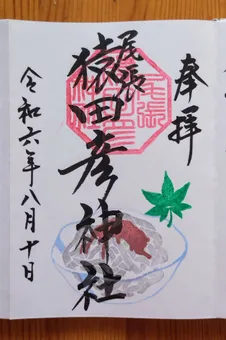 奉拝
尾張
猿田彦神社
令和六年八月十日